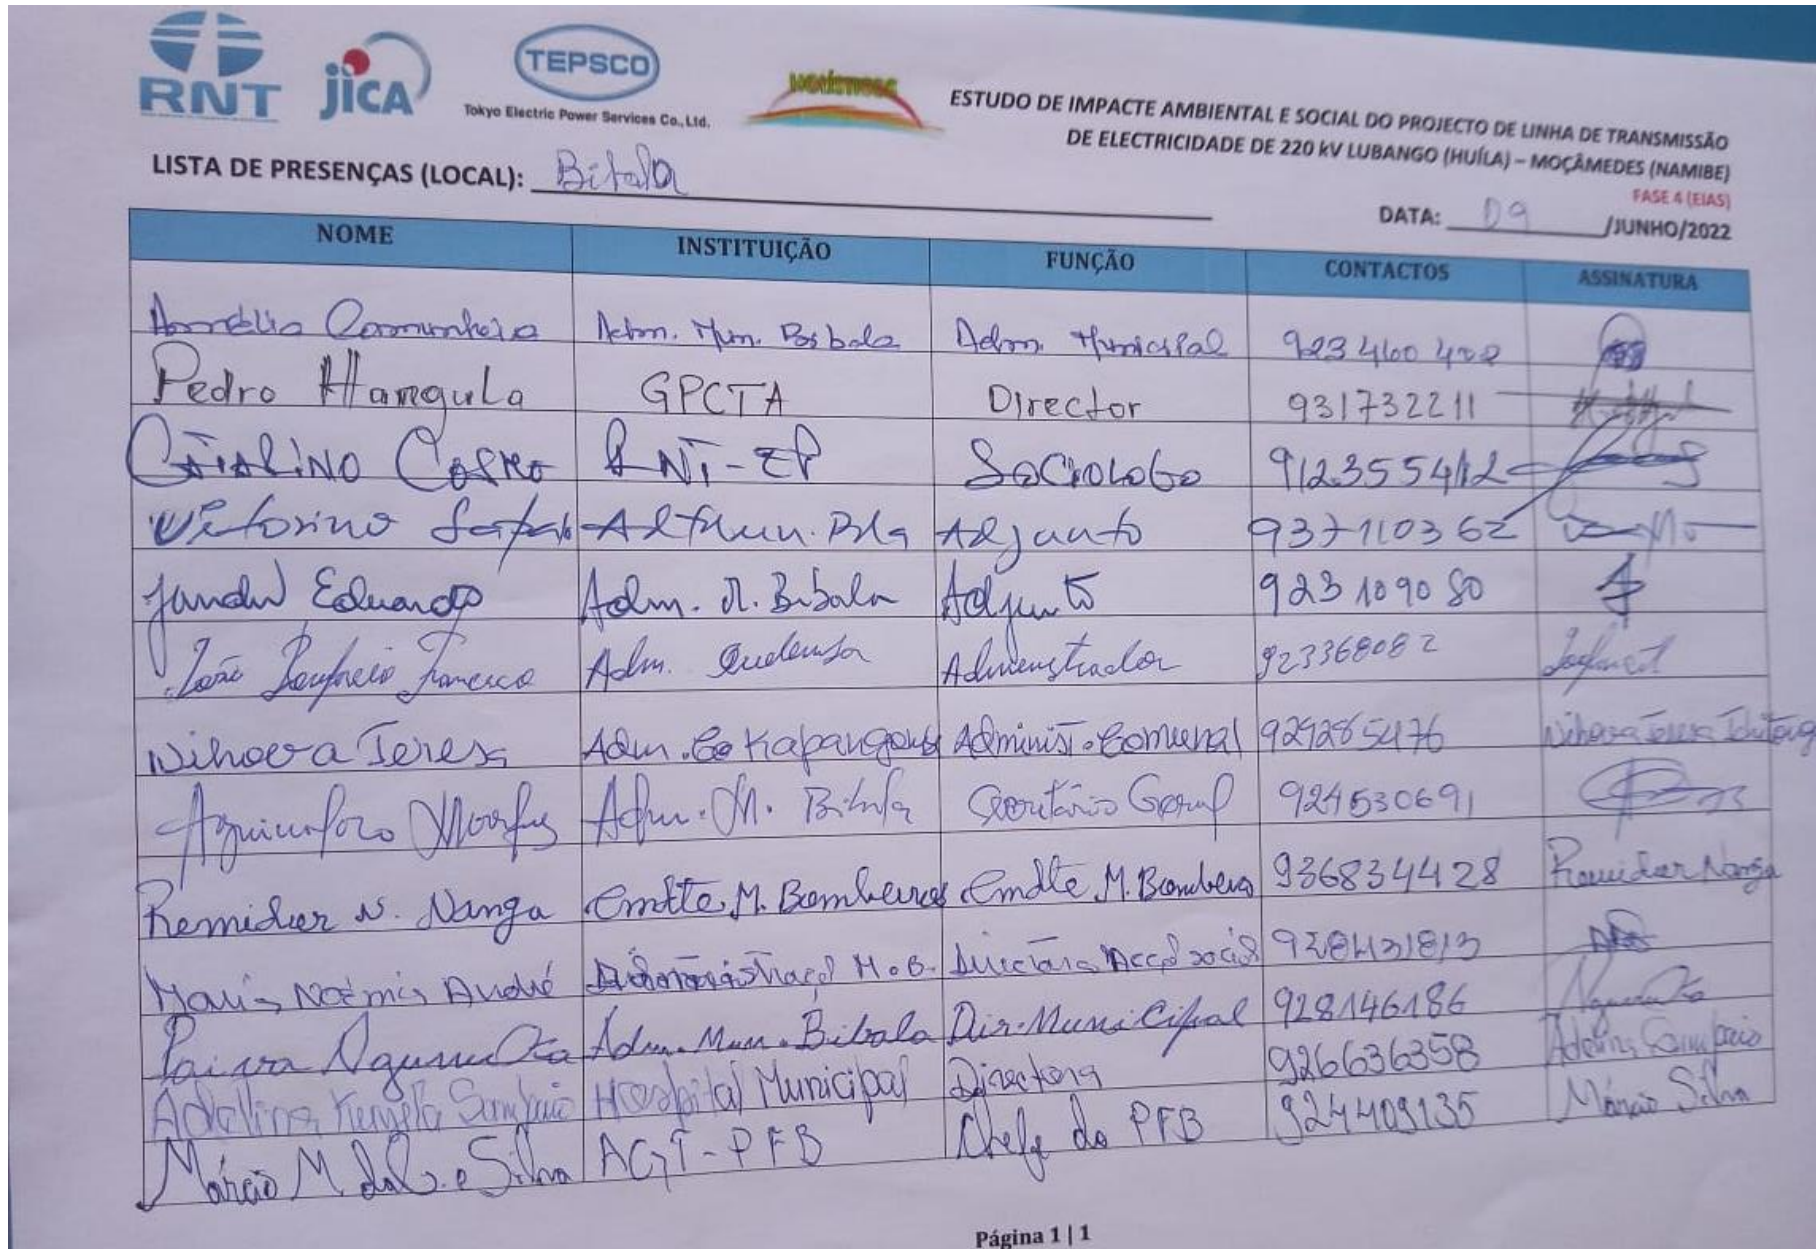 RNT
JICA
TEPSCO
Tokyo Electric Power Services Co., Ltd.
HOLÍSTICOS
ESTUDO DE IMPACTE AMBIENTAL E SOCIAL DO PROJECTO DE LINHA DE TRANSMISSÃO
DE ELECTRICIDADE DE 220 kV LUBANGO (HUÍLA) – MOÇÂMEDES (NAMIBE)
FASE 4 (EIAS)
LISTA DE PRESENÇAS (LOCAL): Bibala
DATA: 09 /JUNHO/2022
NOME INSTITUIÇÃO FUNÇÃO CONTACTOS ASSINATURA
Adm. Mun. Bibala Adm. Municipal 923 460
Pedro Hangula GPCTA Director 931732211
Castro RNT-EP Sociologo 912355412
Vitorino Adjunto 937110362
Eduardo Adm. M. Bibala Adjunto 923109080
João Francisco Adm. Administrador 923368082
Nihova Teresa Adm. Co Kapangombe Administ. Comunal 929285476 Nihova Teresa
Adm. M. Bibala Secretário Geral 924530691
Remidier N. Nanga Cmdte M. Bombeiros Cmdte M. Bombeiros 936834428 Remidier Nanga
Maria Noémia André M.B. Directora Acção social
Paiva Adm. Mun. Bibala Dir. Municipal 928146186
Adelina Sampaio Hospital Municipal Directora 926636358 Adelina Sampaio
Márcio M. Silva AGT-PFB Chefe do PFB 924409135 Márcio Silva
Página 1 | 1